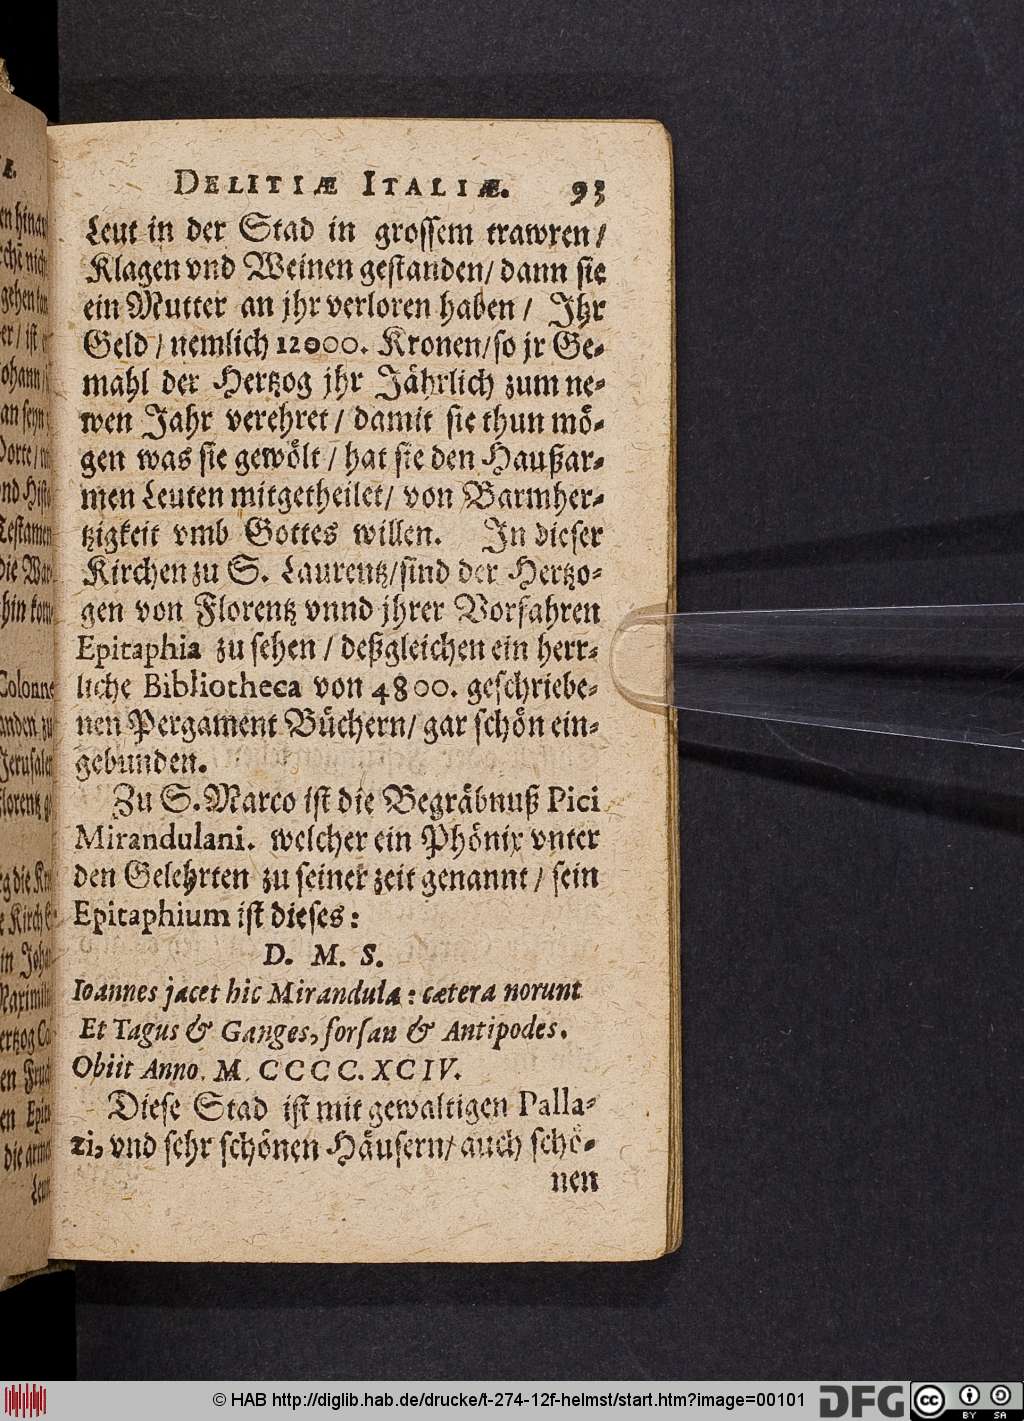 DELITIÆ ITALIÆ. 93
Leut in der Stad in grossem trawren/
Klagen vnd Weinen gestanden/ dann sie
ein Mutter an jhr verloren haben / Jhr
Geld / nemlich 12000. Kronen/ so jr Ge-
mahl der Hertzog jhr Jährlich zum ne-
wen Jahr verehret / damit sie thun mö-
gen was sie gewölt / hat sie den Haußar-
men Leuten mitgetheilet/ von Barmher-
tzigkeit vmb Gottes willen. In dieser
Kirchen zu S. Laurentz/sind der Hertzo-
gen von Florentz vnnd jhrer Vorfahren
Epitaphia zu sehen / deßgleichen ein herr-
liche Bibliotheca von 4800. geschriebe-
nen Pergament Büchern/ gar schön ein-
gebunden.
Zu S. Marco ist die Begräbnuß Pici
Mirandulani. welcher ein Phönix vnter
den Gelehrten zu seiner zeit genannt / sein
Epitaphium ist dieses:
D. M. S.
Ioannes jacet hic Mirandula: cætera norunt
Et Tagus & Ganges, forsan & Antipodes.
Obiit Anno. M. CCCC. XCIV.
Diese Stad ist mit gewaltigen Palla-
zi, vnd sehr schönen Häusern/ auch schö-
nen
© HAB http://diglib.hab.de/drucke/t-274-12f-helmst/start.htm?image=00101
DFG
cc BY SA